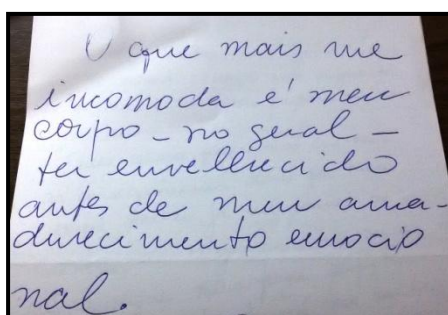 O que mais me
incomoda é meu
corpo - no geral -
ter envelhecido
antes de meu ama-
durecimento emocio
nal.